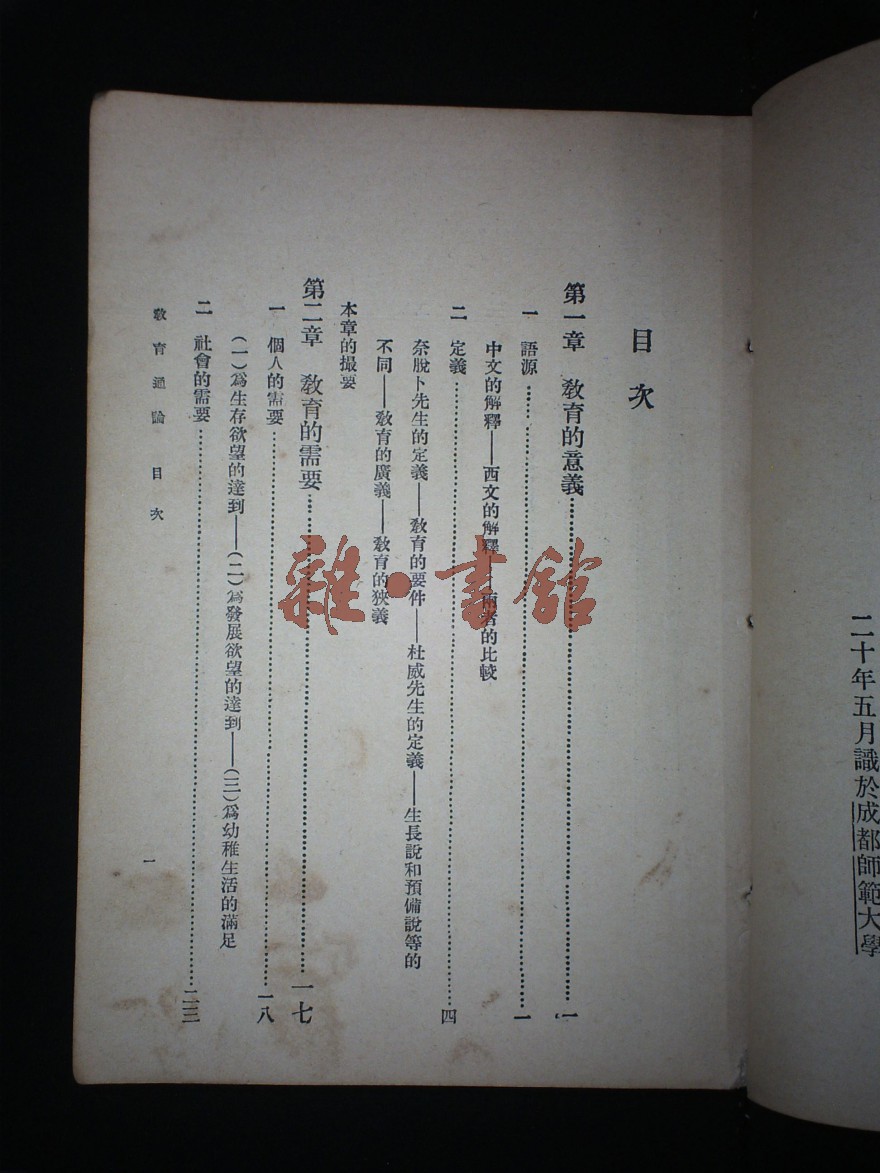 二十年五月識於成都師範大學
目次
第一章 教育的意義……一
一 語源……一
中文的解釋——西文的解釋——兩者的比較
二 定義……四
奈脫卜先生的定義——教育的要件——杜威先生的定義——生長說和預備說等的
不同——教育的廣義——教育的狹義
本章的撮要
第二章 教育的需要……一七
一 個人的需要……一八
(一)爲生存欲望的達到——(二)爲發展欲望的達到——(三)爲幼稚生活的滿足
二 社會的需要……二三
教育通論 目次 一
雜·書館